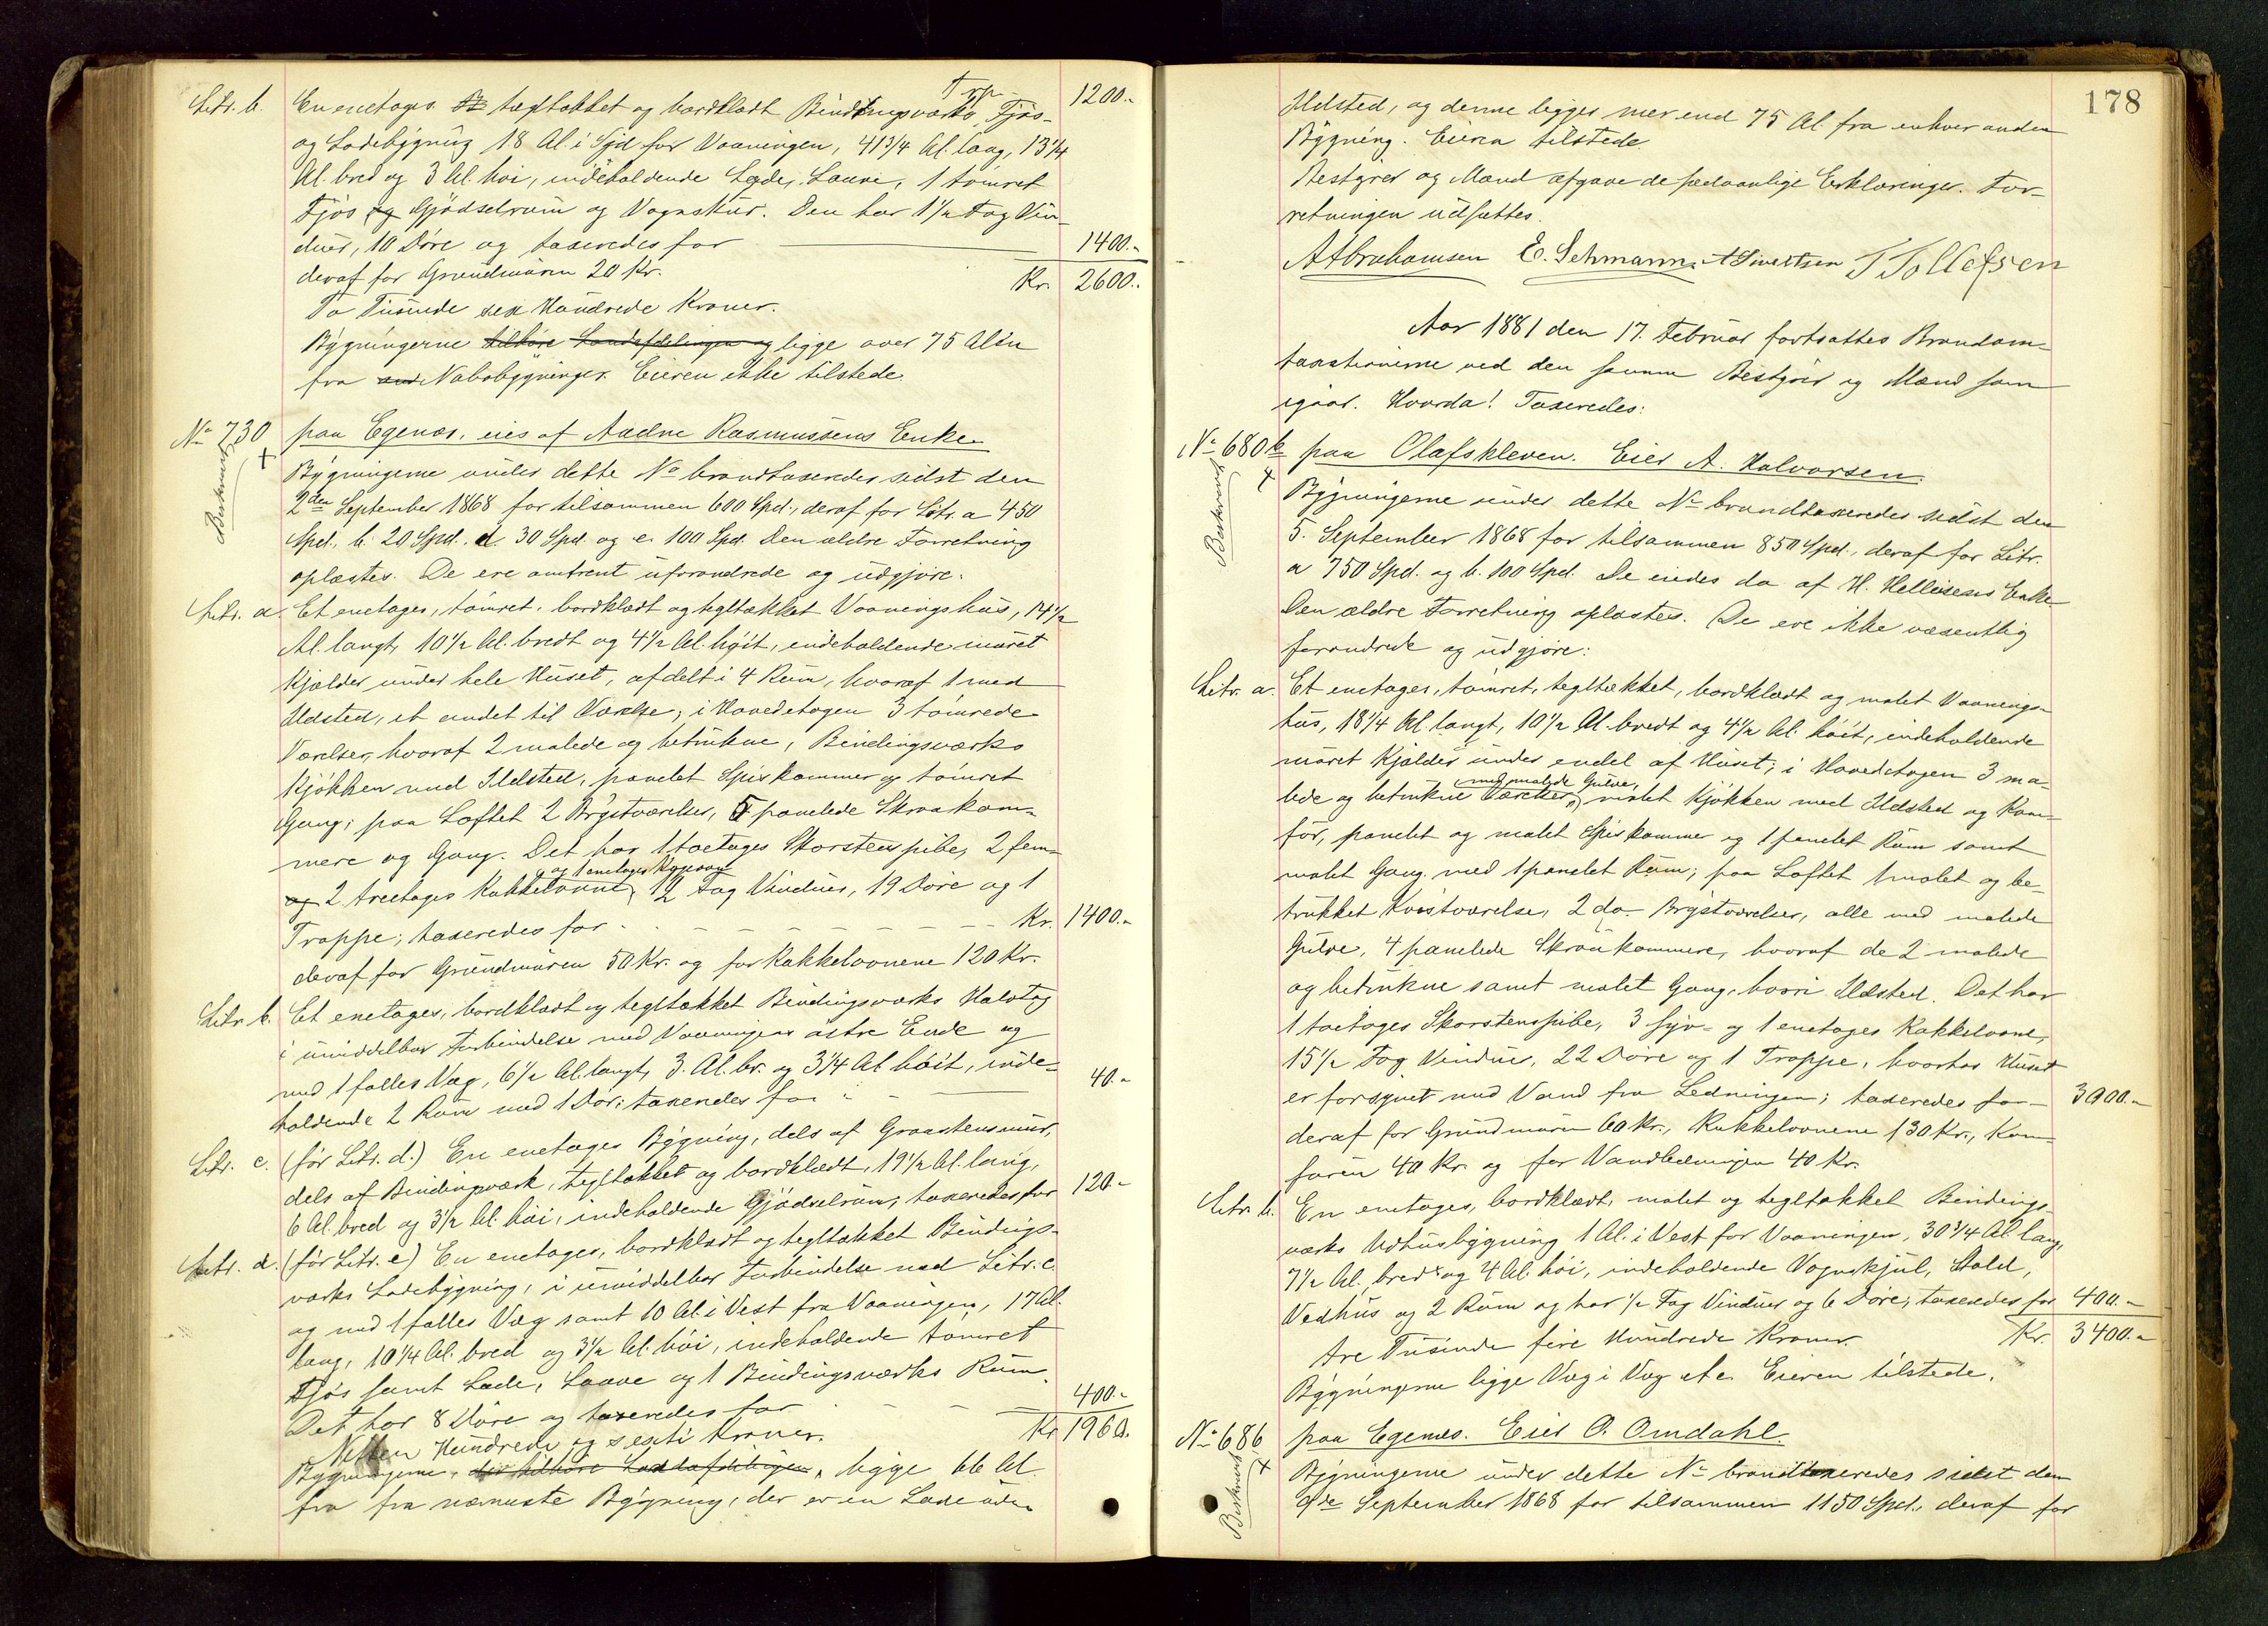 Trp. 1200.-
Litr. b. En enetages tegltækket og bordklædt Bindingsværks Fjøs-
og Ladebygning 18 Al. i Syd for Vaaningen, 41 3/4 Al. lang, 13 1/4
Al. bred og 3 Al. høi, indeholdende Lade, Laave, 1 tømret
Fjøs og Gjødselrum og Vognskur. Den har 1 1/2 Fag Vin-
duer, 10 Døre og taxeredes for 1400.-
deraf for Grundmuren 20 Kr. Kr. 2600.-
To Tusinde sex Hundrede Kroner.
Bygningerne tilhøre Landafdelingen og ligge over 75 Alen
fra Nabobygninger. Eieren ikke tilstede.
No 730 paa Egenæs, eies af Aadne Rasmussens Enke
Beskrevet
Bygningerne under dette No brandtaxeredes sidst den
2den September 1868 for tilsammen 600 Spd., deraf for Litr. a 450
Spd., b. 20 Spd., d. 30 Spd. og e. 100 Spd. Den ældre Forretning
oplæstes. De ere omtrent uforandrede og udgjøre:
Litr. a. Et enetages, tømret, bordklædt og tegltækket Vaaningshus, 14 1/2
Al. langt, 10 1/2 Al. bredt og 4 1/2 Al. høit, indeholdende muret
Kjælder under hele Huset, afdelt i 4 Rum, hvoraf 1 med
Ildsted, et andet til Værelse; i Hovedetagen 3 tømrede
Værelser, hvoraf 2 malede og betrukne, Bindingsværks
Kjøkken med Ildsted, panelet Spiskammer og tømret
Gang; paa Loftet 2 Brystværelser, 5 panelede Skraakam-
mere og Gang. Det har 1 toetages Skorstenspibe, 2 fem-
og 1 enetages Kogeovn
og 2 treetages Kakkelovne, 12 Fag Vinduer, 19 Døre og 1
Trappe; taxeredes for Kr. 1400.-
deraf for Grundmuren 50 Kr. og for Kakkelovnene 120 Kr.
Litr. b. Et enetages, bordklædt og tegltækket Bindingsværks Halvtag
i umiddelbar Forbindelse med Vaaningens østre Ende og
med 1 fælles Væg, 6 1/2 Al. langt, 3 Al. br. og 3 1/4 Al. høit, inde-
holdende 2 Rum med 1 Dør; taxeredes for 40.-
Litr. c. (før Litr. d.) En enetages Bygning, dels af Graastensmur,
dels af Bindingsværk, tegltækket og bordklædt, 19 1/2 Al. lang,
6 Al. bred og 3 1/2 Al. høi, indeholdende Gjødselrum; taxeredes for 120.-
Litr. d. (før Litr. e) En enetages, bordklædt og tegltækket Bindings-
værks Ladebygning, i umiddelbar Forbindelse med Litr. c.
og med 1 fælles Væg samt 10 Al. i Vest fra Vaaningen, 17 Al.
lang, 10 1/4 Al. bred og 3 1/2 Al. høi, indeholdende tømret
Fjøs samt Lade, Laave og 1 Bindingsværks Rum.
Det har 8 Døre og taxeredes for 400.-
Nitten Hundrede og sexti Kroner. Kr. 1960.
Bygningerne, der tilhøre Landafdelingen, ligge 66 Al.
fra fra nærmeste Bygning, der er en Lade uden
178
Ildsted, og denne ligger mer end 75 Al. fra enhver anden
Bygning. Eieren tilstede.
Bestyrer og Mænd afgave de sedvanlige Erklæringer. For-
retningen udsattes.
A Abrahamsen E. Sehmann. A Sivertsen T Tollefsen
Aar 1881 den 17. Februar fortsattes Brandom-
taxationerne ved den samme Bestyrer og Mænd som
igaar. Hvorda! Taxeredes:
No 680 k paa Olafskleven. Eier A. Halvorsen.
Beskrevet
Bygningerne under dette No brandtaxeredes sidst den
5. September 1868 for tilsammen 850 Spd., deraf for Litr.
a 750 Spd. og b. 100 Spd. De eiedes da af H. Hellisens Enke
Den ældre Forretning oplæstes. De ere ikke væsentlig
forandrede og udgjøre:
Litr. a. Et enetages, tømret, tegltækket, bordklædt og malet Vaanings-
hus, 18 1/4 Al. langt, 10 1/2 Al. bredt og 4 1/2 Al. høit, indeholdende
muret Kjælder under endel af Huset; i Hovedetagen 3 ma-
med malede Gulve,
lede og betrukne Værelser, malet Kjøkken med Ildsted og Kom-
før, panelet og malet Spiskammer og 1 panelet Rum samt
malet Gang med 1 panelet Rum; paa Loftet 1 malet og be-
trukket Kvistværelse, 2 do. Brystværelser, alle med malede
Gulve, 4 panelede Skraakammere, hvoraf de 2 malede
og betrukne samt malet Gang, hvori Ildsted. Det har
1 toetages Skorstenspibe, 3 syv- og 1 enetages Kakkelovne,
15 1/2 Fag Vinduer, 22 Døre og 1 Trappe, hvorhos Huset
er forsynet med Vand fra Ledningen; taxeredes for 3000.-
deraf for Grundmuren 60 Kr., Kakkelovnene 130 Kr., Kom-
føren 40 Kr. og for Vandledningen 40 Kr.
Litr. b. En enetages, bordklædt, malet og tegltækket Bindings-
værks Udhusbygning 1 Al. i Vest for Vaaningen, 30 3/4 Al. lang,
7 1/2 Al. bred og 4 Al. høi, indeholdende Vognskjul, Stald,
Vedhus og 2 Rum og har 1/2 Fag Vinduer og 6 Døre; taxeredes for 400.-
tre Tusinde fire Hundrede Kroner. Kr. 3400.-
Bygningerne ligge Væg i Væg etc. Eieren tilstede.
No 686 paa Egenæs. Eier O. Omdahl.
Beskrevet
Bygningerne under dette No brandtaxeredes sidst den
September 1868 for tilsammen 1150 Spd., deraf for